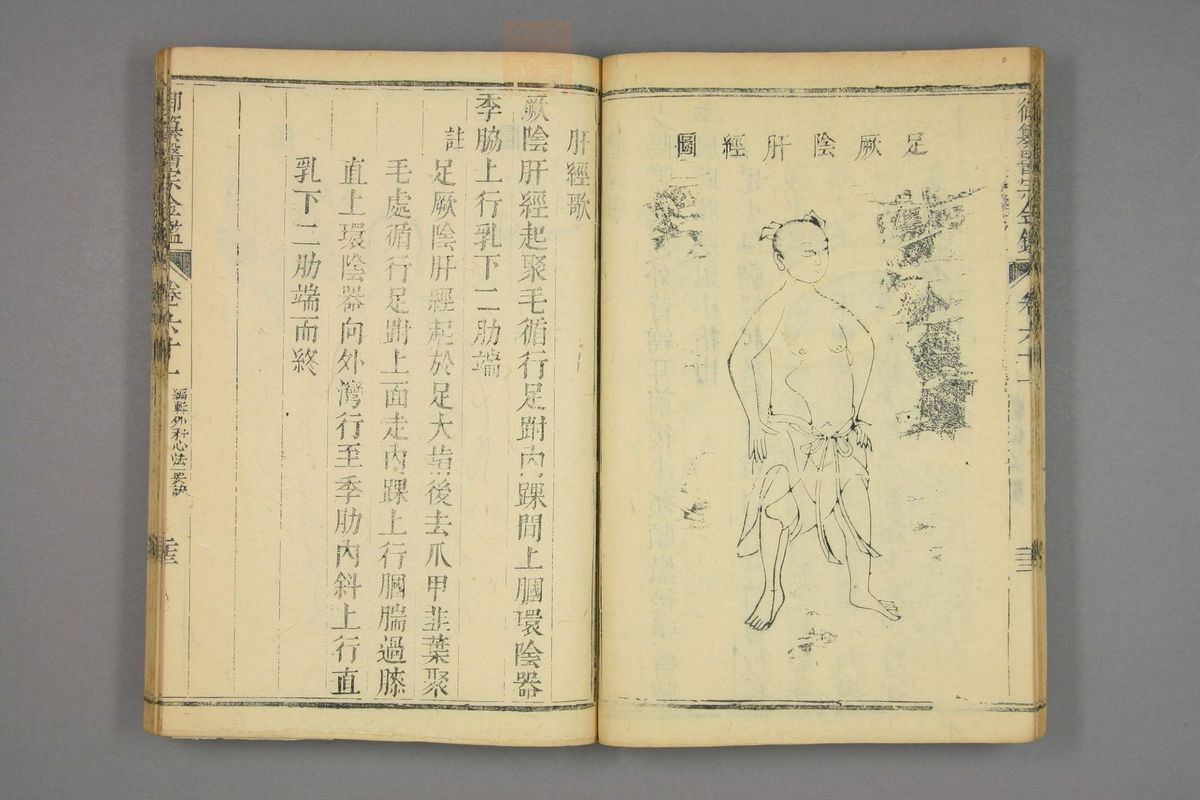 御纂醫宗金鑑
卷六十一
足厥陰肝經圖
肝經歌
厥陰肝經起聚毛循行足跗內踝間上膕環陰器
季脇上行乳下二肋端
註
足厥陰肝經起於足大指後去爪甲韭葉聚
毛處循行足跗上面走內踝上行膕腨過膝
直上環陰器向外灣行至季肋內斜上行直
乳下二肋端而終
御纂醫宗金鑑
卷六十一
編輯外科心法要訣